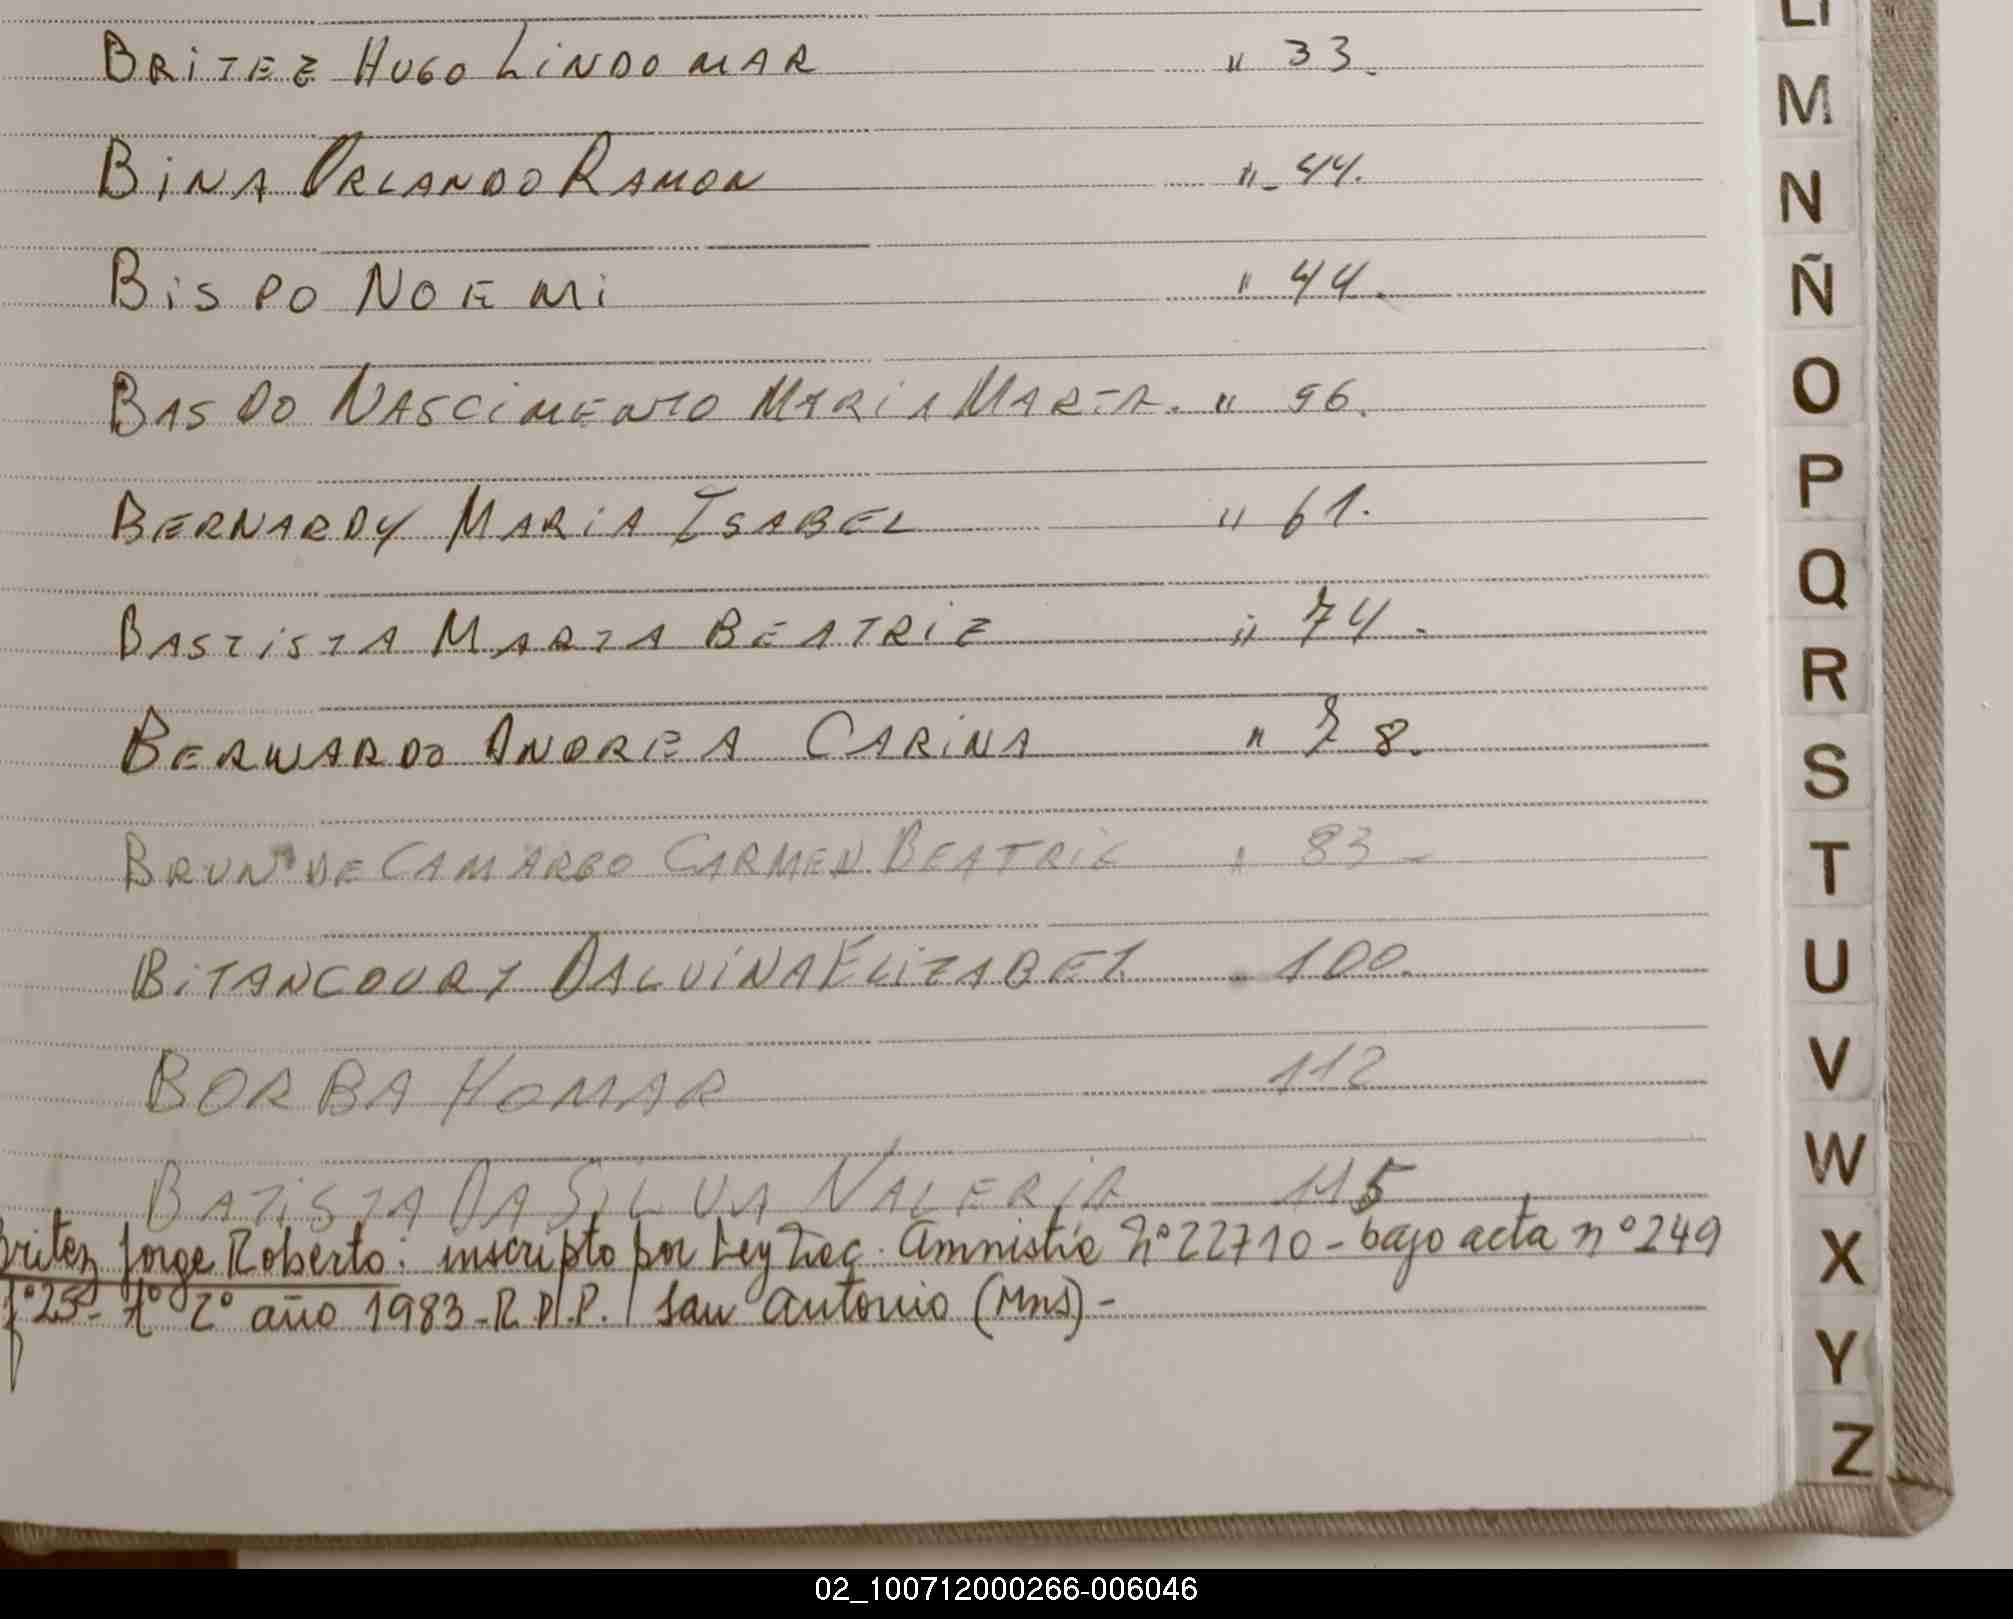 BRITEZ HUGO LINDOMAR " 33.
BINA ORLANDO RAMON "- 44.
BISPO NOEMI " 44.
BAS DO NASCIMENTO MARIA MARTA. " 56.
BERNARDY MARIA ISABEL " 61.
BASTISTA MARTA BEATRIZ " 74.
BERWARDO ANDREA CARINA " 78.
BRUN DE CAMARGO CARMEN BEATRIZ " 83-
BITANCOURT DALVINA ELIZABET 100.
BORBA HOMAR 112
BATISTA DA SILVA VALERIA 115
Britez Jorge Roberto: inscripto por Ley Amnistía Nº 22710 - bajo acta nº 249
fº 25- Tº 2º año 1983-R.P.P. San Antonio (Mns)-
Ll
M
N
Ñ
O
P
Q
R
S
T
U
V
W
X
Y
Z
02_100712000266-006046